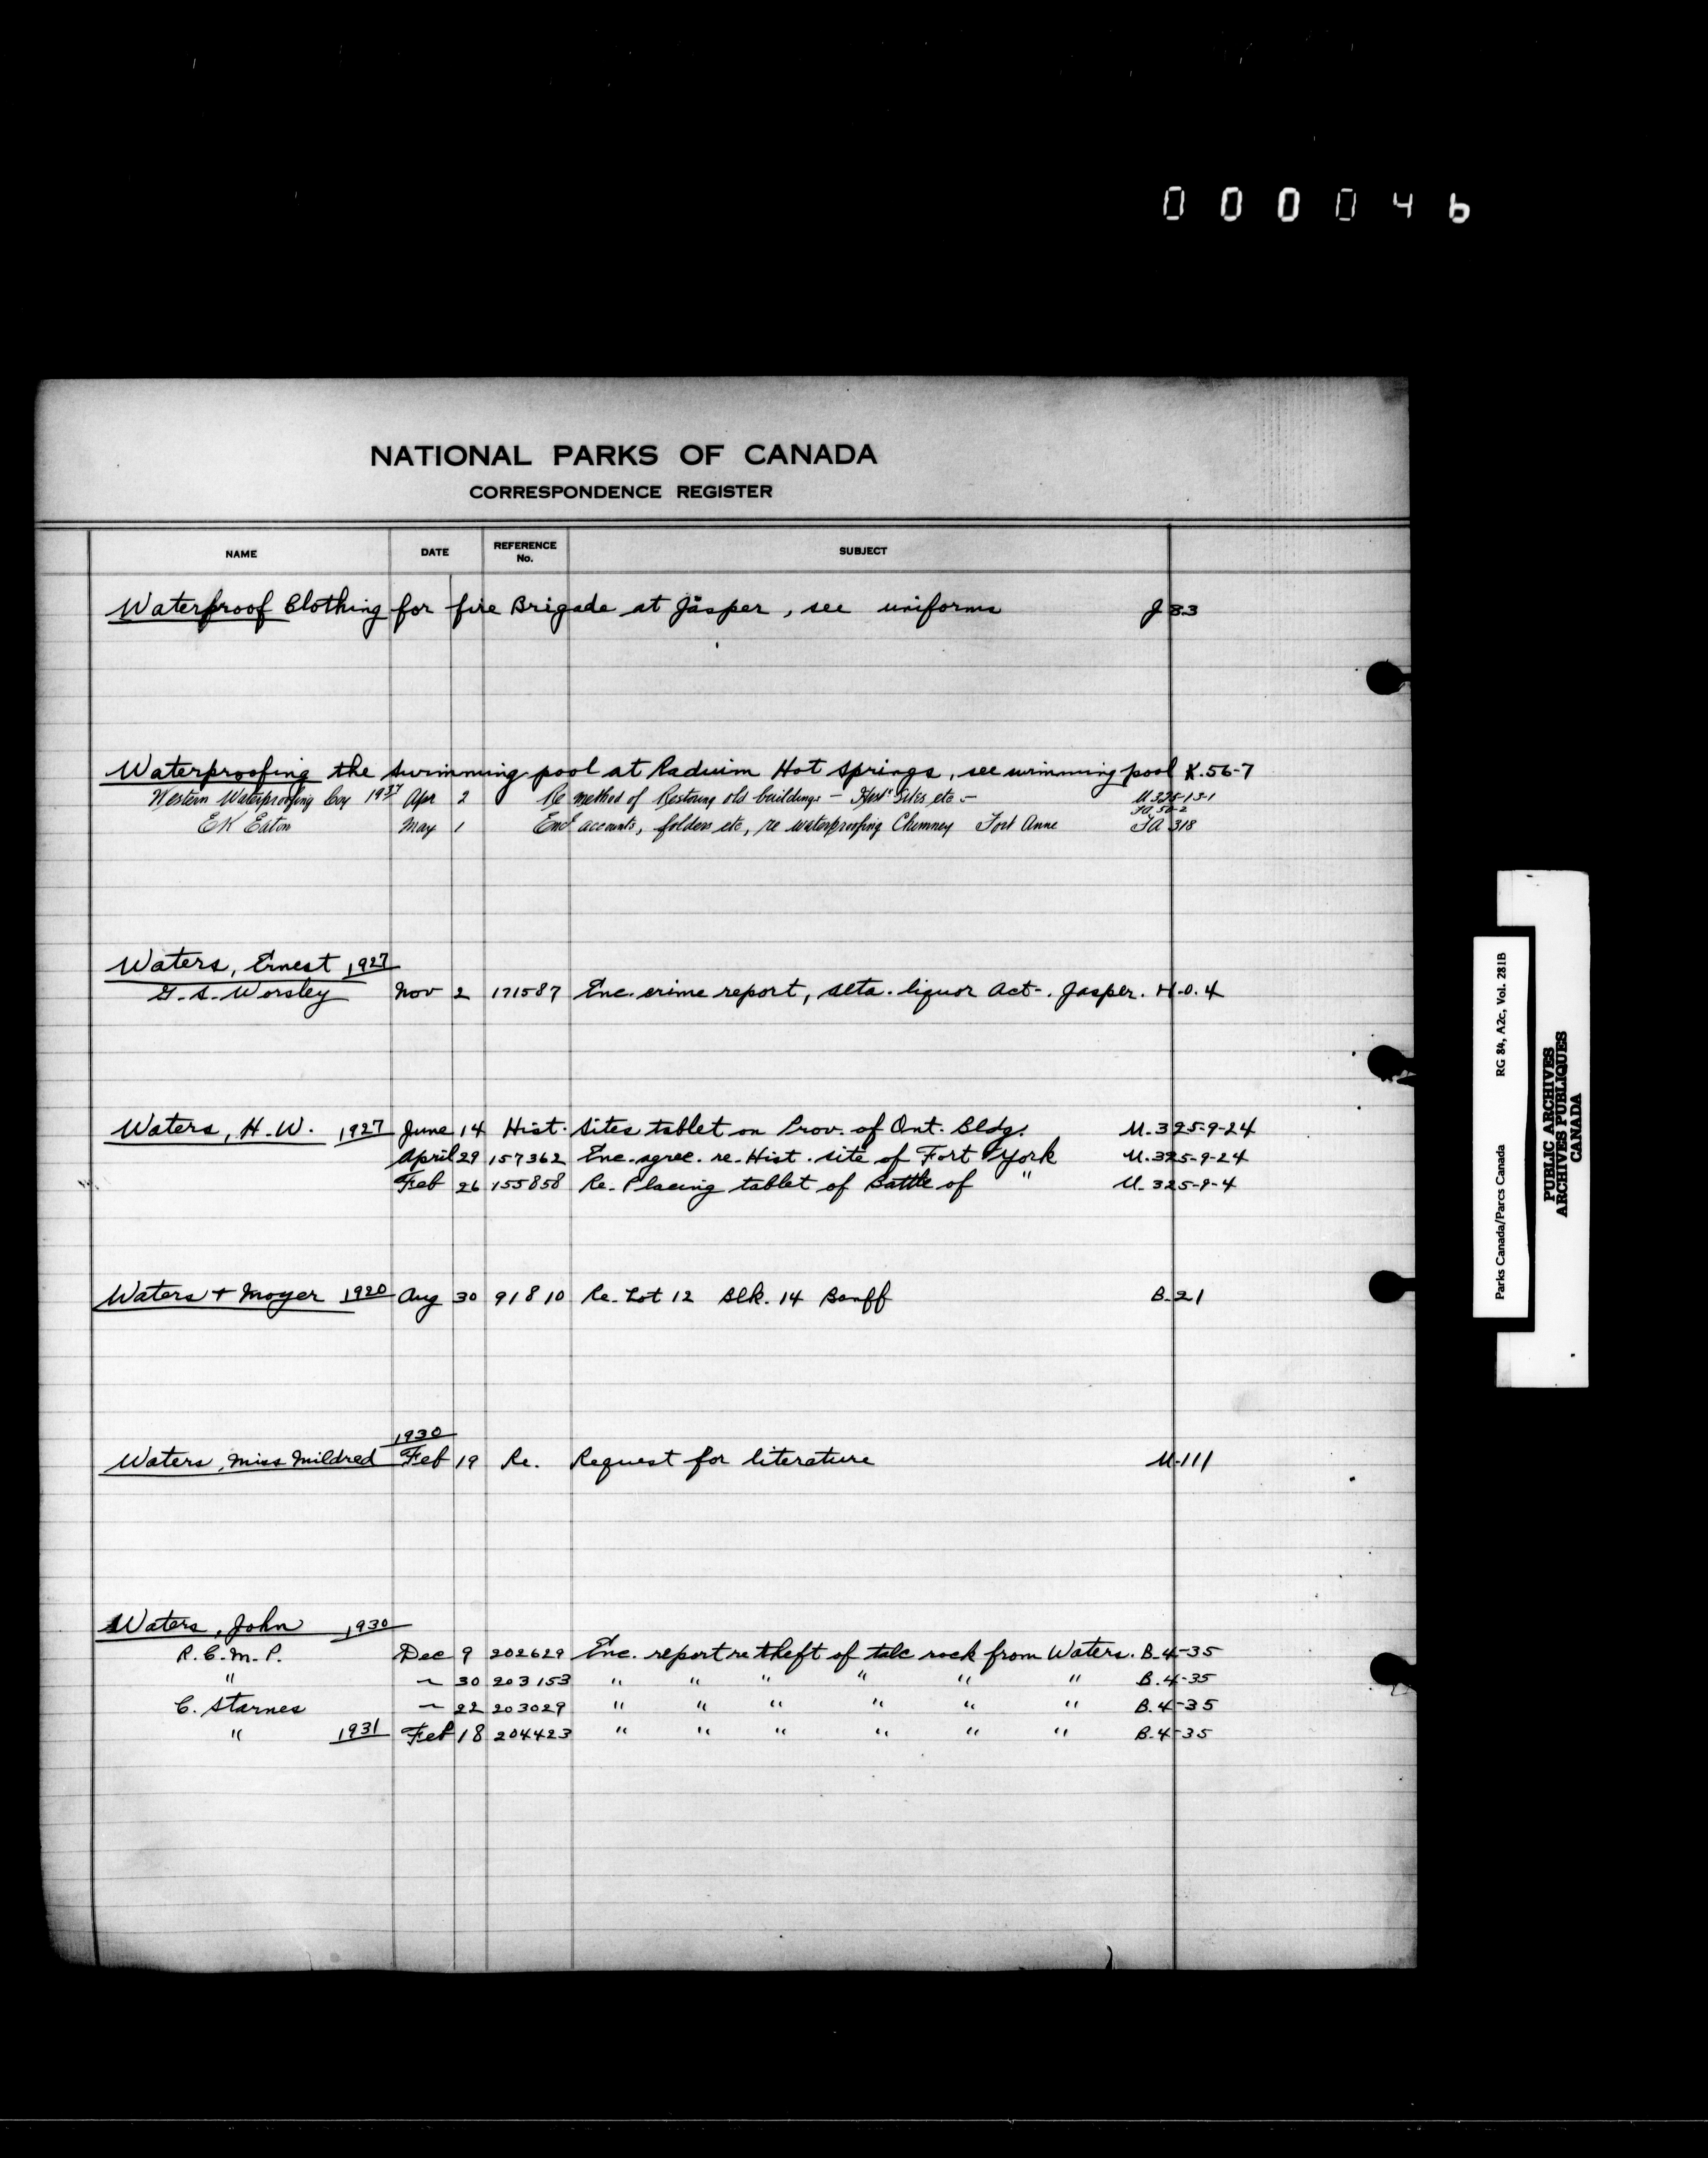 000046
NATIONAL PARKS OF CANADA
CORRESPONDENCE REGISTER
NAME DATE REFERENCE No. SUBJECT
Waterproof Clothing for fire Brigade at Jasper, see uniforms J 83
Waterproofing the swimming pool at Raduim Hot springs, see swimming pool K.56-7
Western Waterproofing Coy 1937 Apr 2 Re method of Restoring old buildings - Hist" Sites etc - U 325-13-1
FA 50-2
EK Eaton May 1 Encl accounts, folders etc, re waterproofing Chimney Fort Anne FA 318
Waters, Ernest 1927
G. S. Worsley Nov 2 171587 Enc. crime report, Alta. liquor Act-. Jasper. H.O.4
Waters, H.W. 1927 June 14 Hist. Sites tablet on Prov. of Ont. Bldg. U.325-9-24
April 29 157362 Enc. agree. re. Hist. site of Fort York U.325-9-24
Feb 26 155858 Re. Placing tablet of Battle of " U.325-9-4
Waters + Moyer 1920 Aug 30 91810 Re. Lot 12 Blk. 14 Banff B.21
1930
Waters, Miss Mildred Feb 19 Re. Request for literature U-111
Waters, John 1930
R.C.M.P. Dec 9 202629 Enc. report re theft of talc rock from Waters. B.4-35
" ~ 30 203153 " " " " " " B.4-35
C. Starnes ~ 22 203029 " " " " " " B.4-35
" 1931 Feb 18 204423 " " " " " " B.4-35
Parks Canada/Parcs Canada RG 84, A2c, Vol. 281B
PUBLIC ARCHIVES
ARCHIVES PUBLIQUES
CANADA